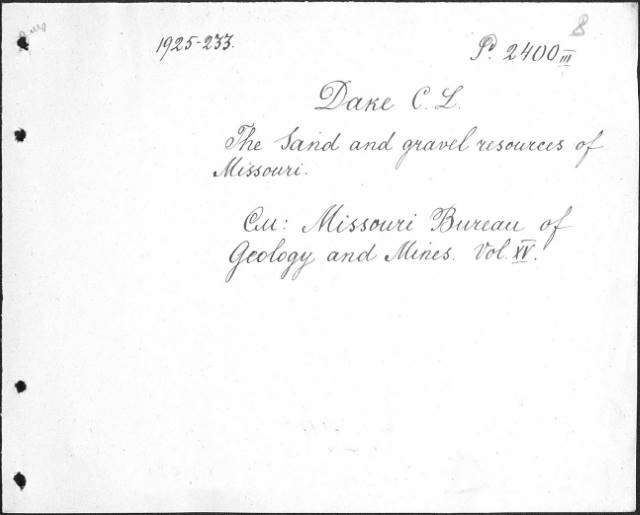 8
1925-233.
P. 2400 III
Dake C. L.
The Sand and gravel resources of
Missouri.
См: Missouri Bureau of
Geology and Mines. Vol. XV.